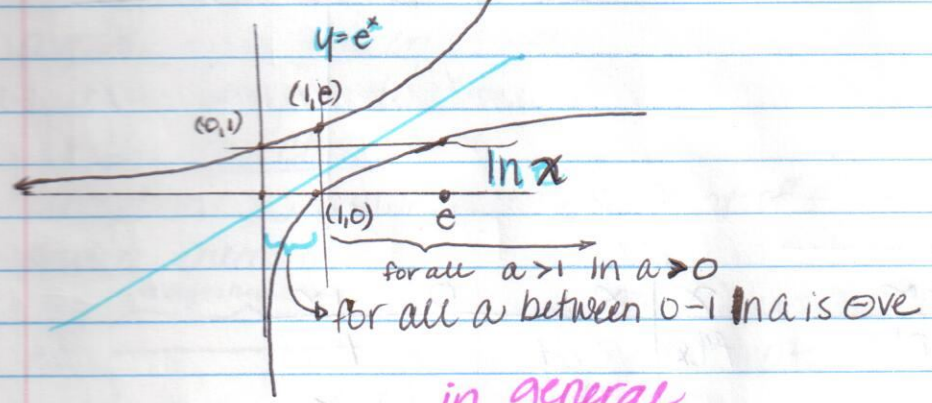 y=e^x
(1,e)
(0,1)
ln x
(1,0)
e
for all a>1 ln a>0
for all a between 0-1 ln a is ⊖ve
in general